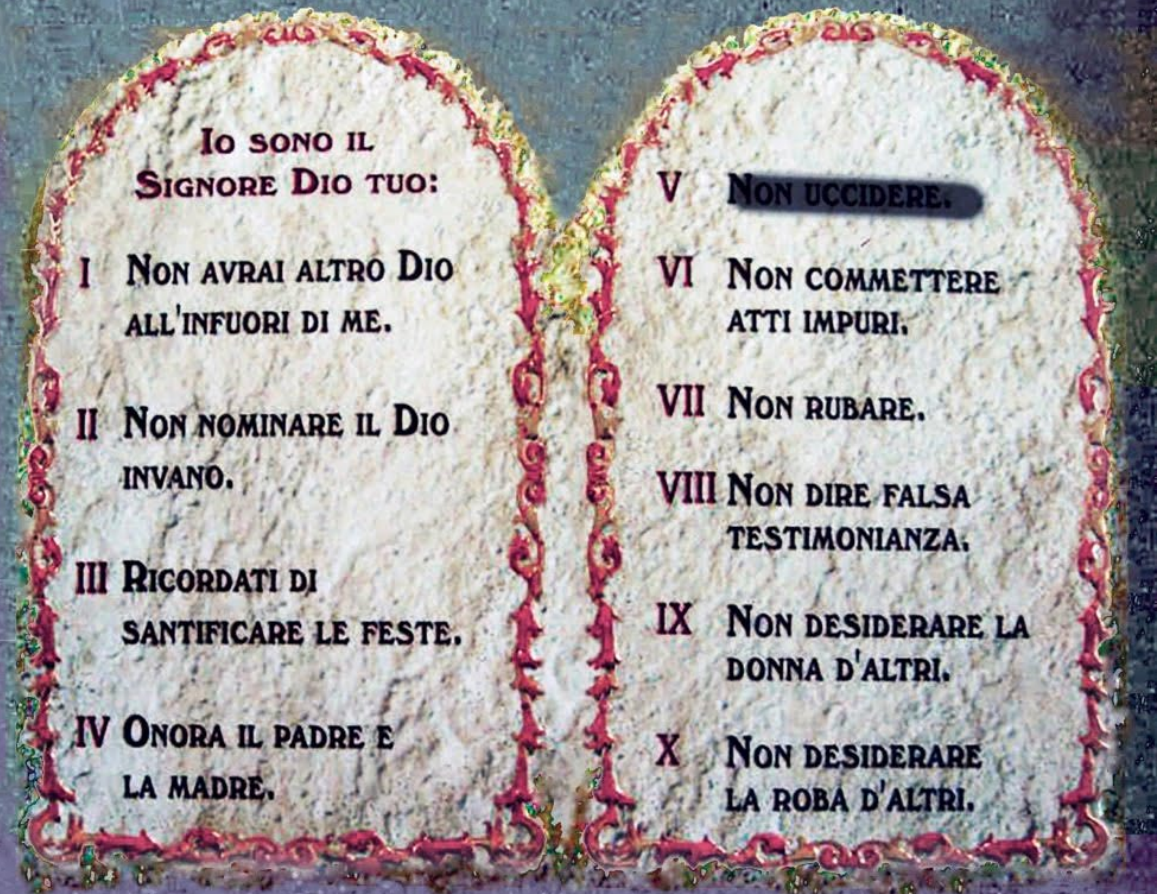 Io sono il
Signore Dio tuo:
I Non avrai altro Dio
all'infuori di me.
II Non nominare il Dio
invano.
III Ricordati di
santificare le feste.
IV Onora il padre e
la madre.
V Non uccidere.
VI Non commettere
atti impuri.
VII Non rubare.
VIII Non dire falsa
testimonianza.
IX Non desiderare la
donna d'altri.
X Non desiderare
la roba d'altri.